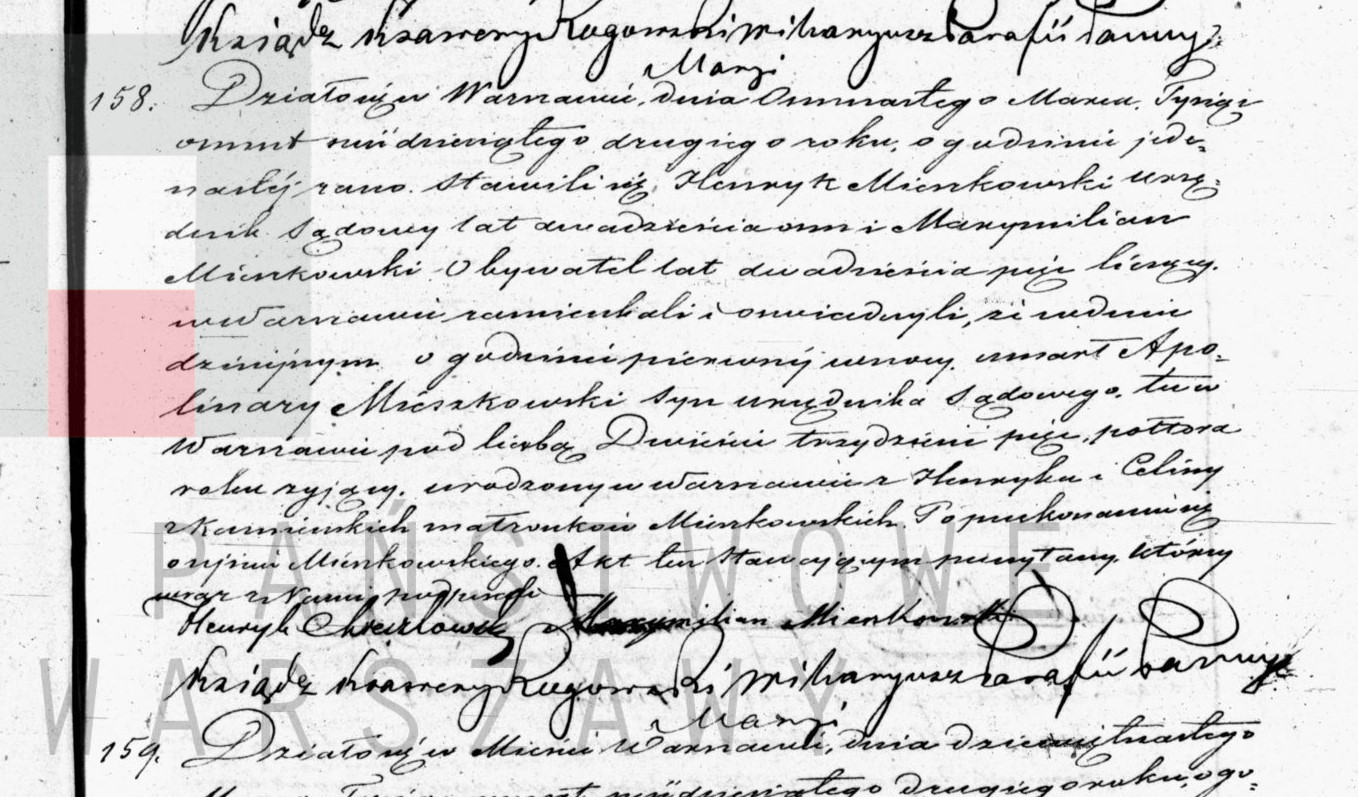 Ksiądz Ksawery Rogowski Wikaryusz Parafii Panny
Maryi
158. Działo się w Warszawie, dnia Osmnastego Marca, Tysiąc
osmset sześćdziesiątego drugiego roku, o godzinie jede-
nastéj rano. Stawili się, Henryk Mieszkowski urzę-
dnik Sądowy lat dwadzieścia osm i Maxymilian
Mieszkowski Obywatel lat dwadzieścia pięć liczący,
w Warszawie zamieszkali i oswiadczyli, że w dniu
dzisiejszym o godzinie pierwszéj w nocy, umarł Apo-
linary Mieszkowski Syn urzędnika Sądowego, tu w
Warszawie pod liczbą Dwieście trzydzieści pięć, półtora
roku żyjący, urodzony w Warszawie z Henryka i Celiny
z Kamieńskich małżonków Mieszkowskich. Po przekonaniu się
o zejściu Mieszkowskiego. Akt ten Stawającym przeczytany, którzy
wraz z Nami podpisali
Henryk Maxymilian Mieszkowski
Ksiądz Ksawery Rogowski Wikaryusz Parafii Panny
Maryi
159. Działo się w Mieście Warszawie, dnia dziewiętnastego
Marca Tysiąc osmset sześćdziesiątego drugiego roku, o go-
PAŃSTWOWE
WARSZAWY